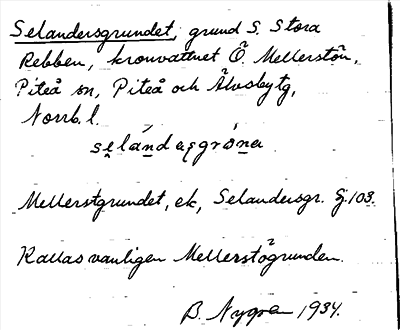 Selandersgrundet, grund S. Stora
Rebben, kronvattnet Ö. Mellerstön,
Piteå sn, Piteå och Älvsbytg,
Norrb. l.
Mellerstgrundet, ek, Selandersgr. Gj. 103.
Kallas vanligen Mellerstögrunden.
B. Nygren 1934.